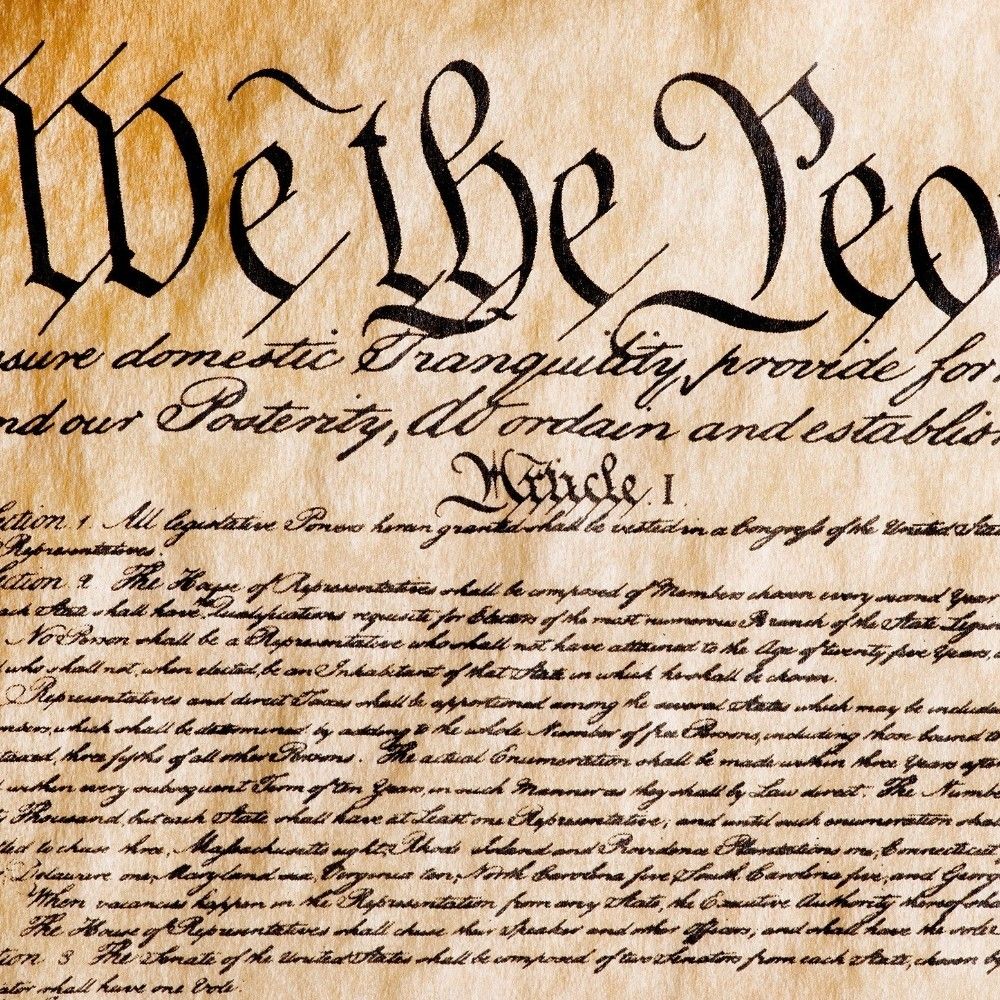 We the Peo
sure domestic Tranquility, provide for
nd our Posterity, do ordain and establis
Article. I.
ection. 1. All legislative Powers herein granted shall be vested in a Congress of the United Stat
Representatives.
ection. 2. The House of Representatives shall be composed of Members chosen every second Year
ach State shall have the Qualifications requisite for Electors of the most numerous Branch of the State Legis
No Person shall be a Representative who shall not have attained to the Age of twenty five Years, a
who shall not, when elected, be an Inhabitant of that State in which he shall be chosen.
Representatives and direct Taxes shall be apportioned among the several States which may be include
mbers, which shall be determined by adding to the whole Number of free Persons, including those bound to
taxed, three fifths of all other Persons. The actual Enumeration shall be made within three Years after
within every subsequent Term of ten Years, in such Manner as they shall by Law direct. The Numbe
Thousand, but each State shall have at Least one Representative; and until such enumeration shal
tled to chuse three, Massachusetts eight, Rhode Island and Providence Plantations one, Connecticut
Delaware one, Maryland six, Virginia ten, North Carolina five, South Carolina five, and Georg
When vacancies happen in the Representation from any State, the Executive Authority thereof sha
The House of Representatives shall chuse their Speaker and other Officers; and shall have the sole
tion. 3. The Senate of the United States shall be composed of two Senators from each State, chosen by
ator shall have one Vote.